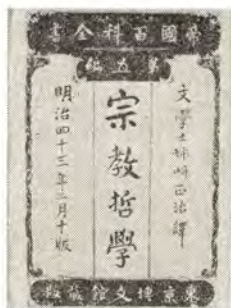 帝國百科全書
第五編
文學士姉崎正治譯
宗教哲學
明治四十三年三月十版
東京博文館蔵版